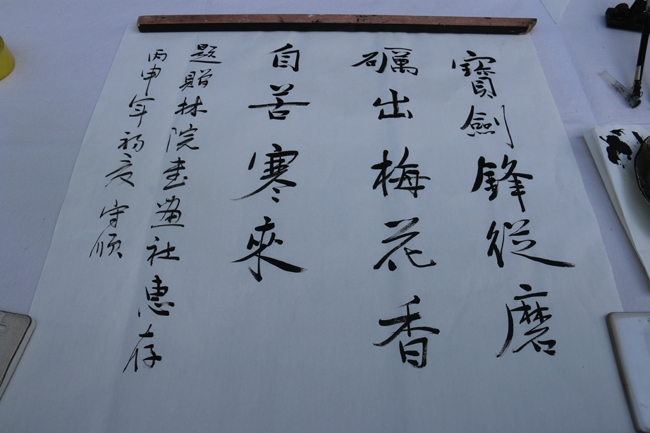 寶劍鋒從磨
礪出梅花香
自苦寒來
題贈林院書畫社惠存
丙申年初夏 守順